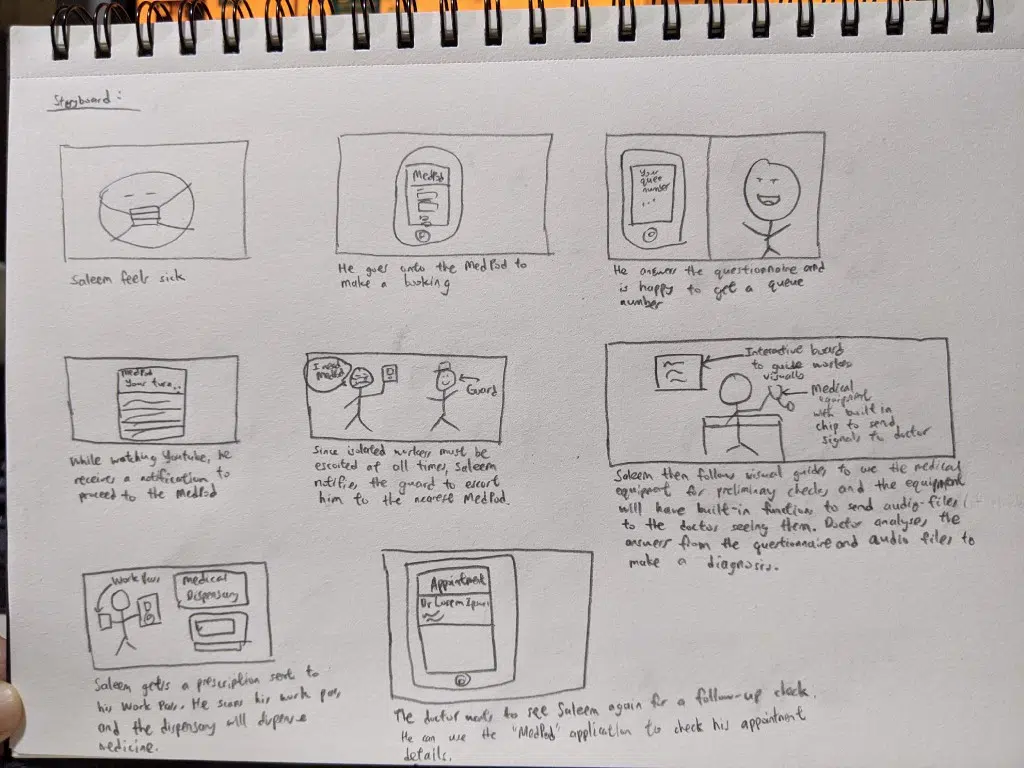 Storyboard:
Saleem feels sick
MedPod
He goes onto the MedPod to
make a booking
Your
queue
number
...
He answers the questionnaire and
is happy to get a queue
number
MedPod
Your turn..
While watching Youtube, he
receives a notification to
proceed to the MedPod
I need
MedPod
Guard
Since isolated workers must be
escorted at all times, Saleem
notifies the guard to escort
him to the nearest MedPod.
Interactive board
to guide workers
visually
Medical
equipment
with built-in
chip to send
signals to doctor
Saleem then follows visual guides to use the medical
equipment for preliminary checks, and the equipment
will have built-in function to send audio-files
to the doctor seeing them. Doctor analyses the
answers from the questionnaire and audio files to
make a diagnosis.
Work Pass
Medical
Dispensary
Saleem gets a prescription sent to
his Work Pass. He scans his work pass
and the dispensary will dispense
medicine.
Appointment
Dr Lorem Ipsum
The doctor wants to see Saleem again for a follow-up check.
He can use the "MedPod" application to check his appointment
details.